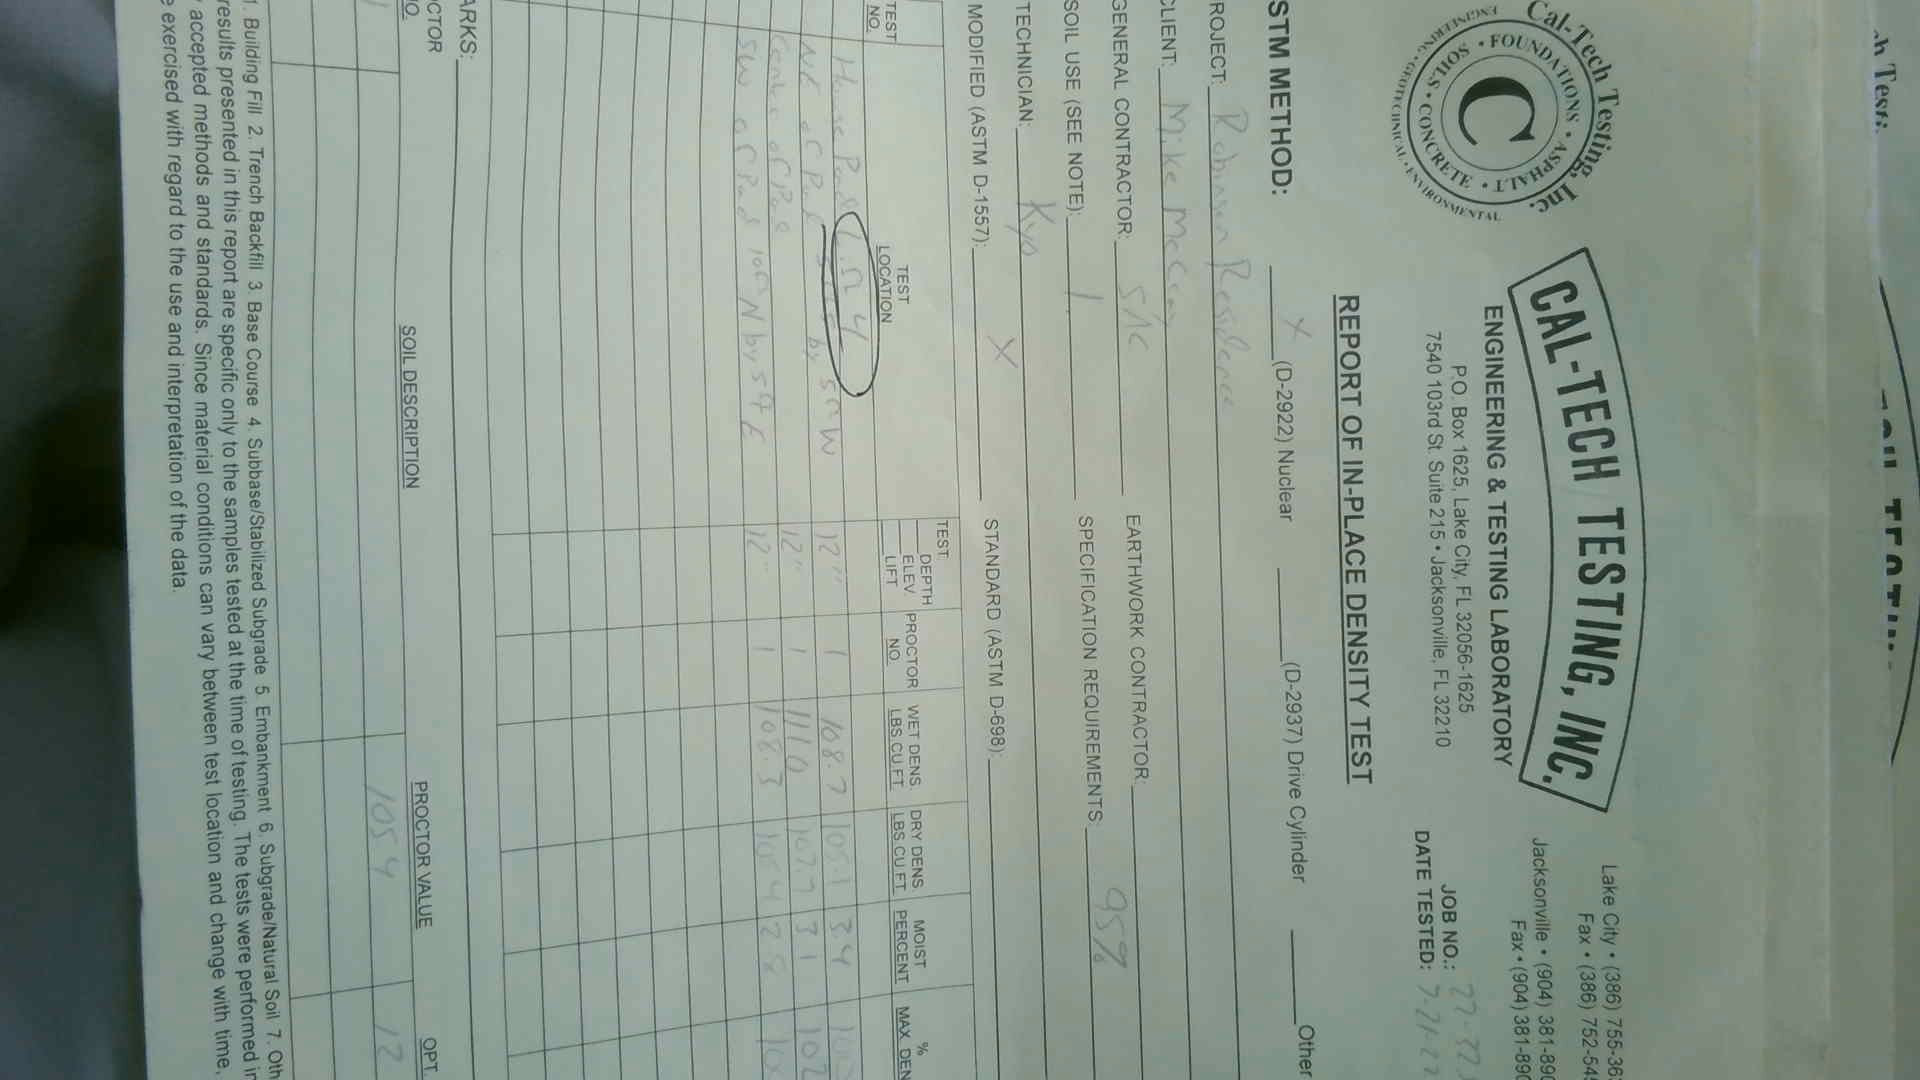 Cal-Tech Testing, Inc.
• FOUNDATIONS • ASPHALT • CONCRETE • SOILS
ENGINEERING • GEOTECHNICAL • ENVIRONMENTAL
C
CAL-TECH TESTING, INC.
ENGINEERING & TESTING LABORATORY
P.O. Box 1625, Lake City, FL 32056-1625
7540 103rd St. Suite 215 • Jacksonville, FL 32210
Lake City • (386) 755-36
Fax • (386) 752-54
Jacksonville • (904) 381-890
Fax • (904) 381-890
JOB NO.: 22-
DATE TESTED: 7-21-22
REPORT OF IN-PLACE DENSITY TEST
STM METHOD: X (D-2922) Nuclear (D-2937) Drive Cylinder Other
ROJECT: Robinson Residence
CLIENT: Mike McCray
GENERAL CONTRACTOR: EARTHWORK CONTRACTOR:
SOIL USE (SEE NOTE): 1. SPECIFICATION REQUIREMENTS: 95%
TECHNICIAN:
MODIFIED (ASTM D-1557): X STANDARD (ASTM D-698):
TEST NO. TEST LOCATION TEST: DEPTH ELEV. LIFT PROCTOR NO. WET DENS. LBS.CU.FT. DRY DENS. LBS.CU.FT. MOIST PERCENT % MAX. DEN
House Pad 12" 1 108.7 105.1 3.4
of Pad by 12" 1 107.7 3.1 102
Center of Pad
SW of Pad N by 12" 1 108.3 105.4 2.8
ARKS:
CTOR NO. SOIL DESCRIPTION PROCTOR VALUE OPT.
105.4 12
1. Building Fill 2. Trench Backfill 3. Base Course 4. Subbase/Stabilized Subgrade 5. Embankment 6. Subgrade/Natural Soil 7. Oth
results presented in this report are specific only to the samples tested at the time of testing. The tests were performed in
accepted methods and standards. Since material conditions can vary between test location and change with time,
e exercised with regard to the use and interpretation of the data.